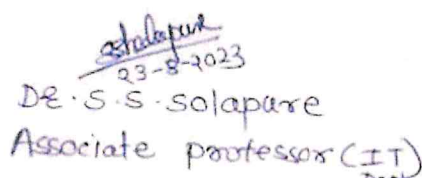 23-8-2023
DR. S. S. Solapure
Associate professor (IT)